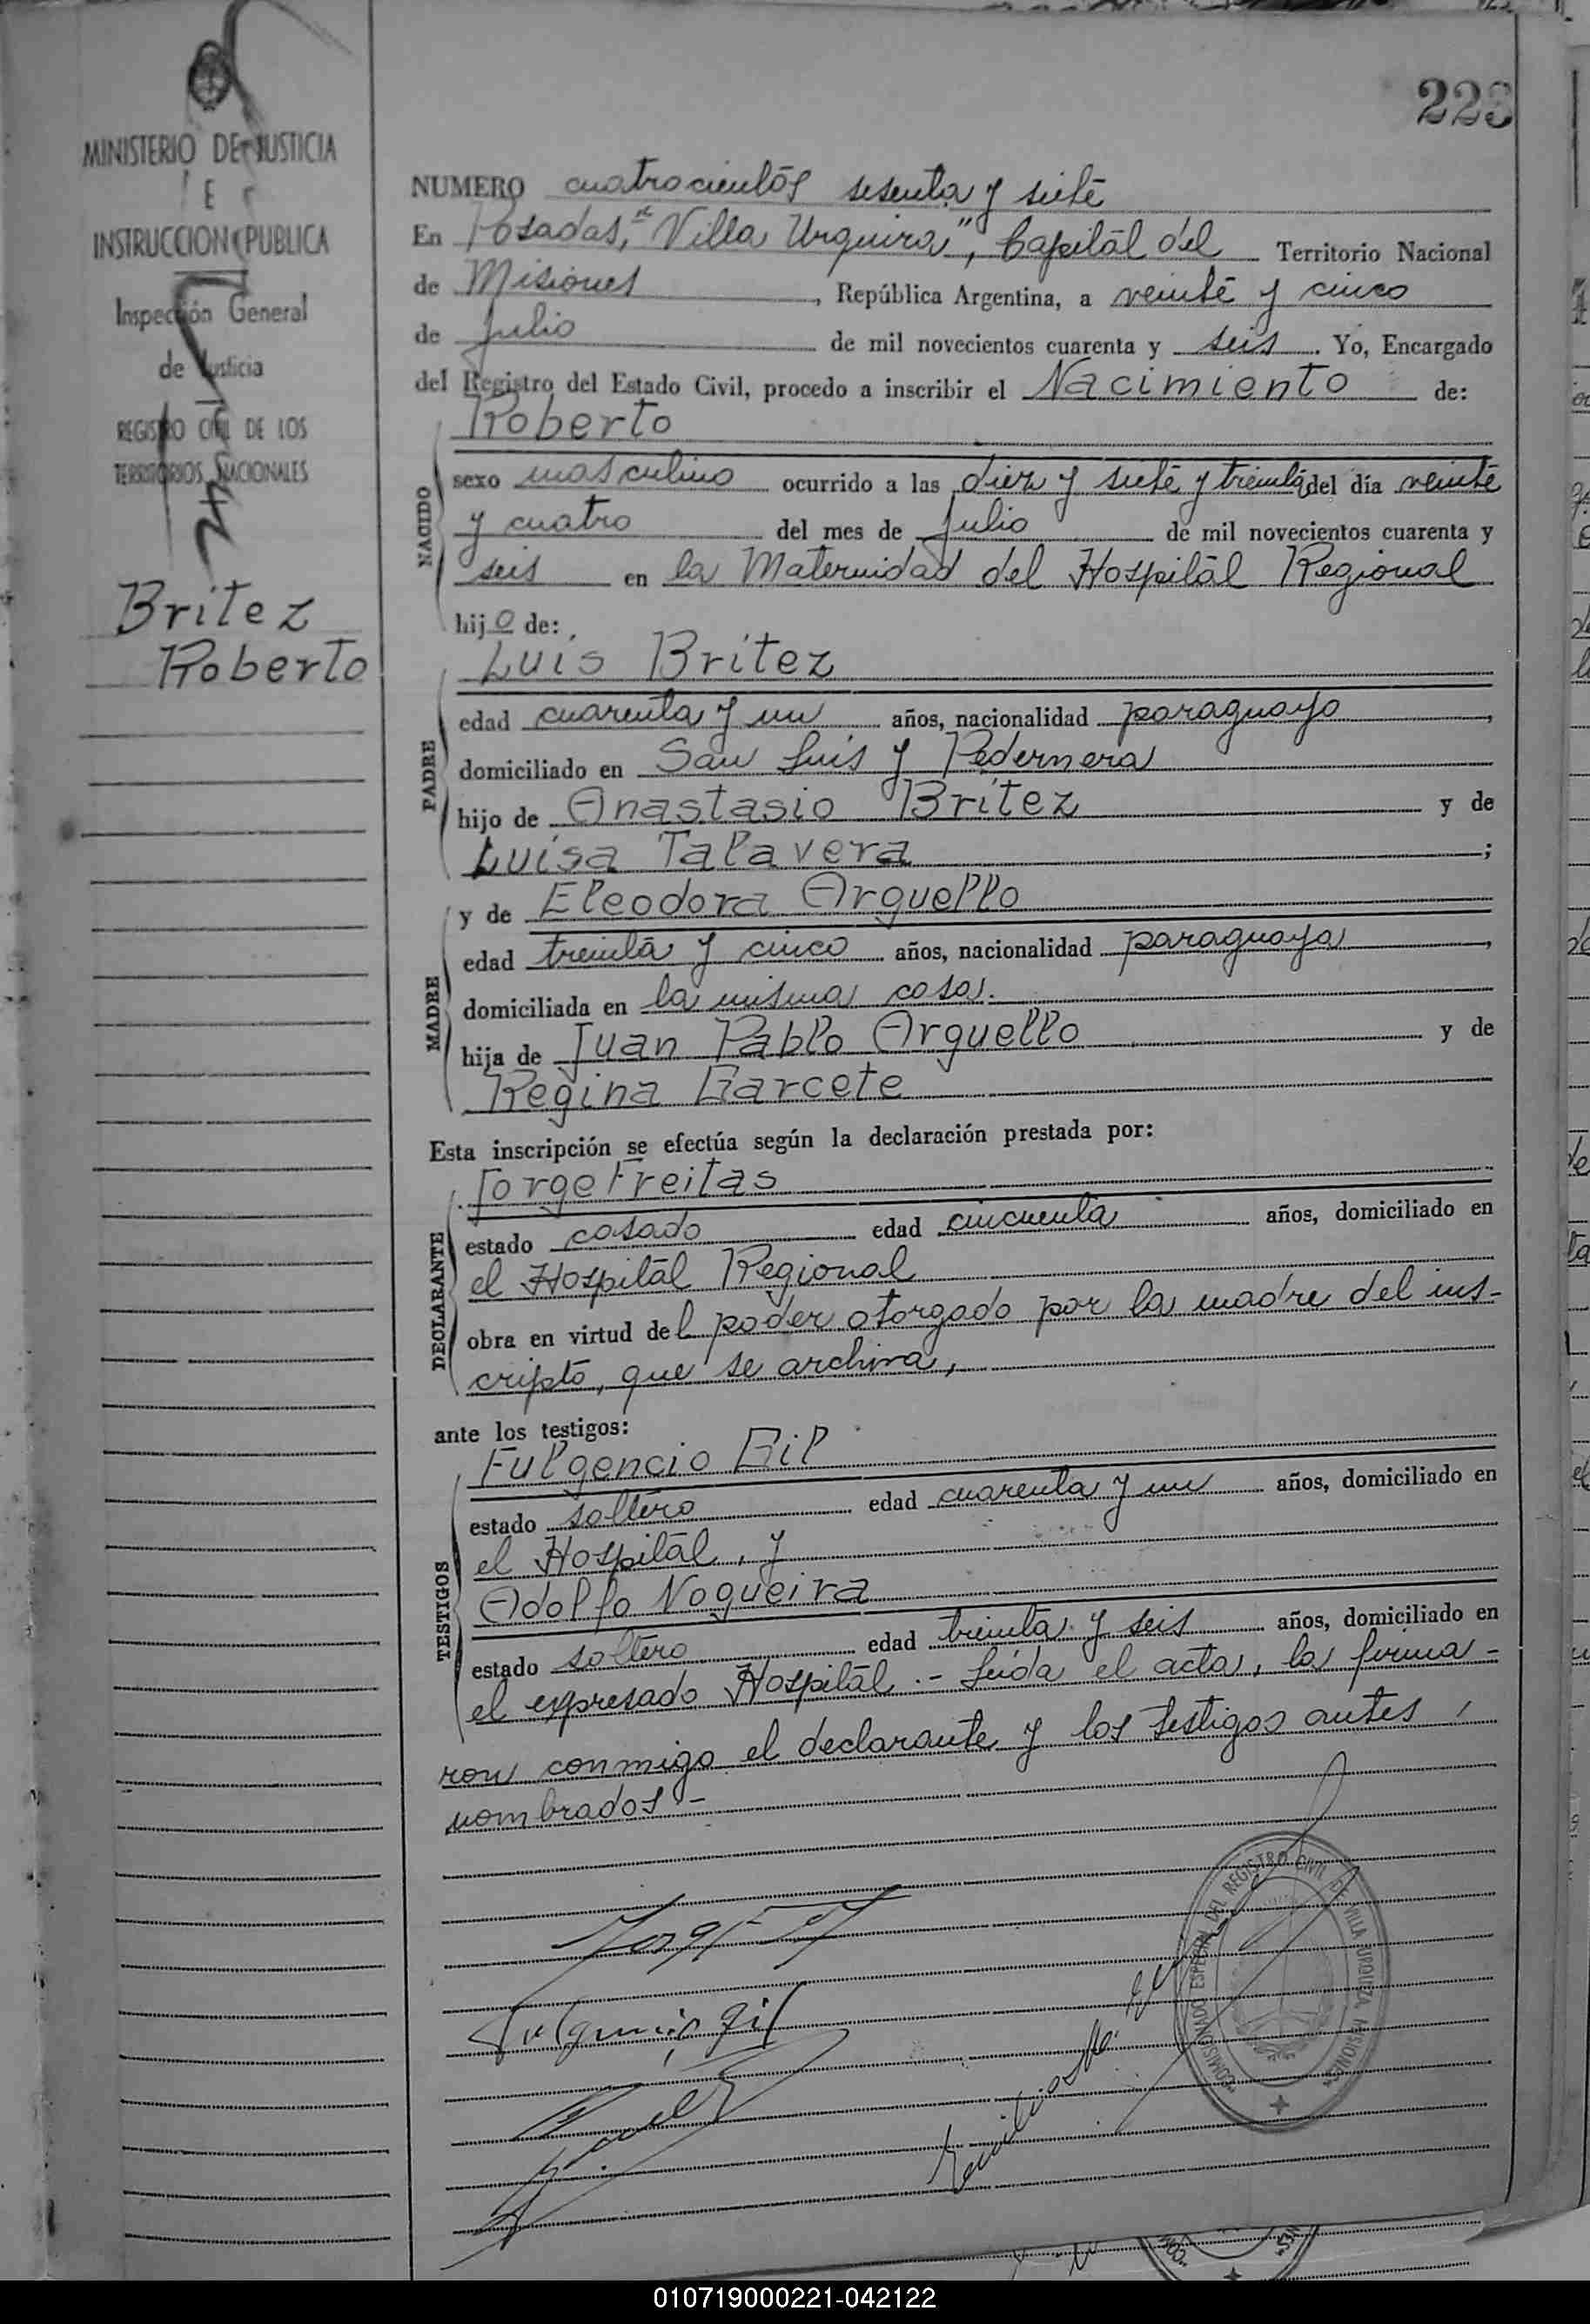 223
MINISTERIO DE JUSTICIA
E
INSTRUCCION PUBLICA
Inspección General
de Justicia
REGISTRO CIVIL DE LOS
TERRITORIOS NACIONALES
Britez
Roberto
NUMERO cuatrocientos sesenta y siete
En Posadas, "Villa Urquiza", Capital del Territorio Nacional
de Misiones, República Argentina, a veinte y cinco
de Julio de mil novecientos cuarenta y seis. Yo, Encargado
del Registro del Estado Civil, procedo a inscribir el Nacimiento de:
NACIDO
Roberto
sexo masculino ocurrido a las diez y siete y treinta del día veinte
y cuatro del mes de Julio de mil novecientos cuarenta y
seis en la Maternidad del Hospital Regional
hijo de:
PADRE
Luis Britez
edad cuarenta y un años, nacionalidad paraguayo,
domiciliado en San Luis y Pedernera
hijo de Anastasio Britez y de
Luisa Talavera;
MADRE
y de Eleodora Arguello
edad treinta y cinco años, nacionalidad paraguaya,
domiciliada en la misma casa.
hija de Juan Pablo Arguello y de
Regina Garcete
Esta inscripción se efectúa según la declaración prestada por:
DECLARANTE
Jorge Freitas
estado casado edad cincuenta años, domiciliado en
el Hospital Regional
obra en virtud del poder otorgado por la madre del ins-
cripto, que se archiva,
ante los testigos:
TESTIGOS
Fulgencio Gil
estado soltero edad cuarenta y un años, domiciliado en
el Hospital, y
Adolfo Nogueira
estado soltero edad treinta y seis años, domiciliado en
el expresado Hospital.- Leída el acta, la firma-
ron conmigo el declarante y los testigos antes
nombrados-
Fulgencio Gil
COMISIONADO ESPECIAL DEL REGISTRO CIVIL DE VILLA URQUIZA MISIONES
010719000221-042122